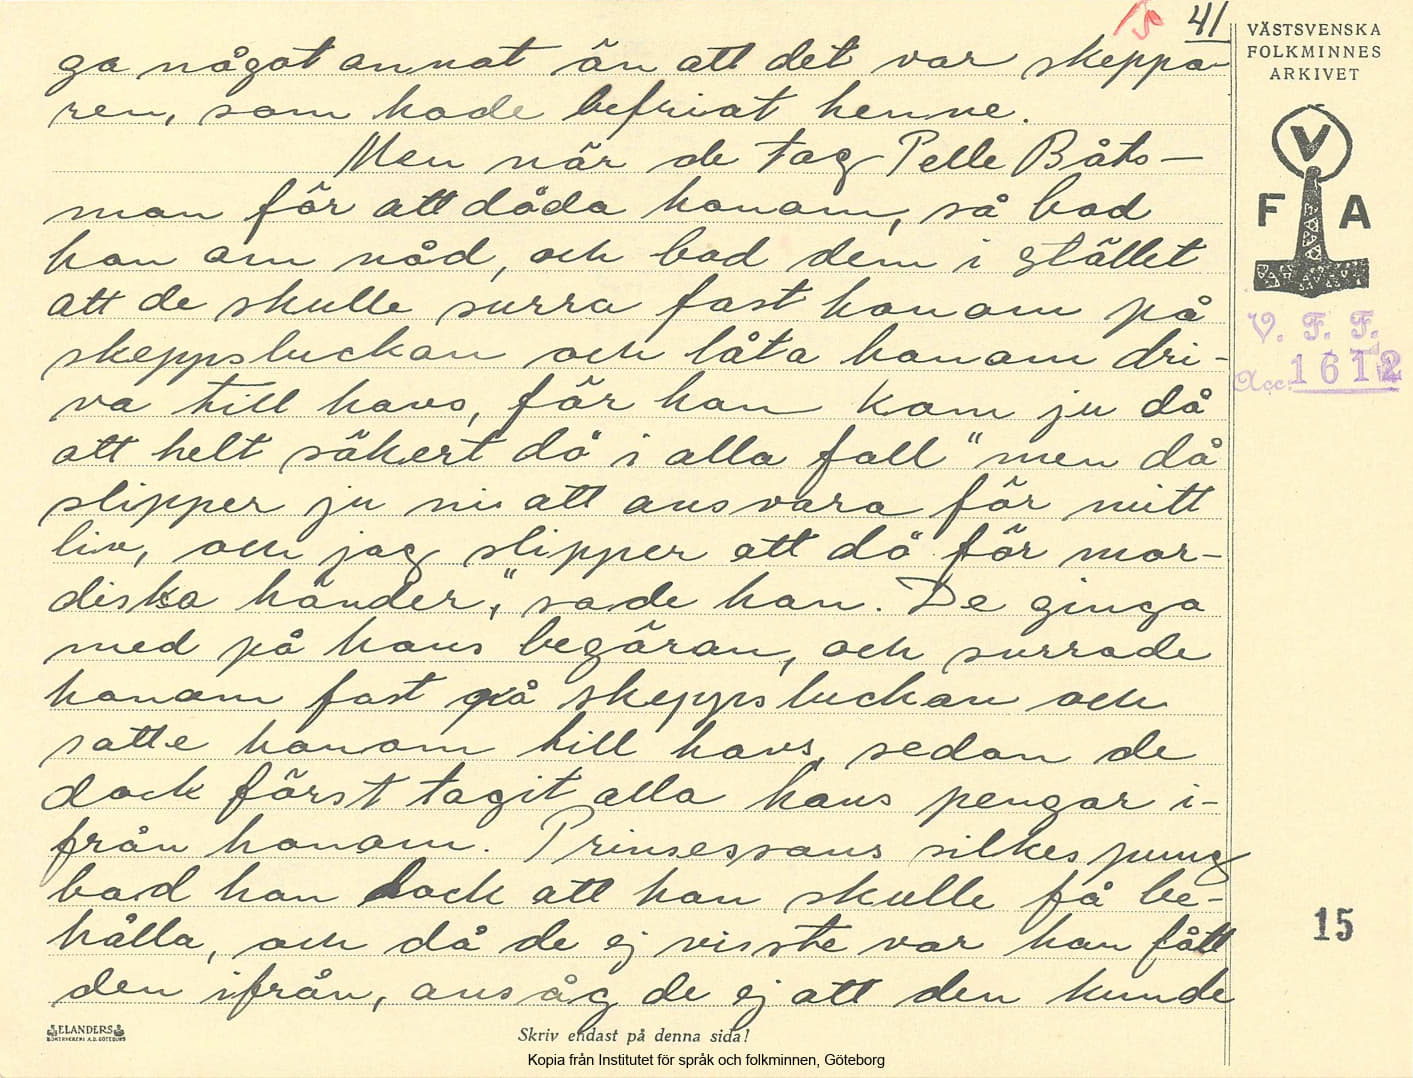 15 41
ga något annat än att det var skeppa-
ren, som hade befriat henne.
Men när de tog Pelle Båts-
man för att döda honom, så bad
han om nåd, och bad dem i stället
att de skulle surra fast honom på
skeppsluckan och låta honom dri-
va till havs, för han kom ju då
att helt säkert dö i alla fall "men då
slipper ju ni att ansvara för mitt
liv, och jag slipper att dö för mor-
diska händer," sade han. De ginga
med på hans begäran, och surrade
honom fast på skeppsluckan och
satte honom till havs, sedan de
dock först tagit alla hans pengar i-
från honom. Prinsessans silkespung
bad han dock att han skulle få be-
hålla, och då de ej visste var han fått
den ifrån, ansåg de ej att den kunde
VÄSTSVENSKA
FOLKMINNES
ARKIVET
V
F A
V. F. F.
Acc. 1612
15
ELANDERS
BOKTRYCKERI A.B. GÖTEBORG
Skriv endast på denna sida!
Kopia från Institutet för språk och folkminnen, Göteborg